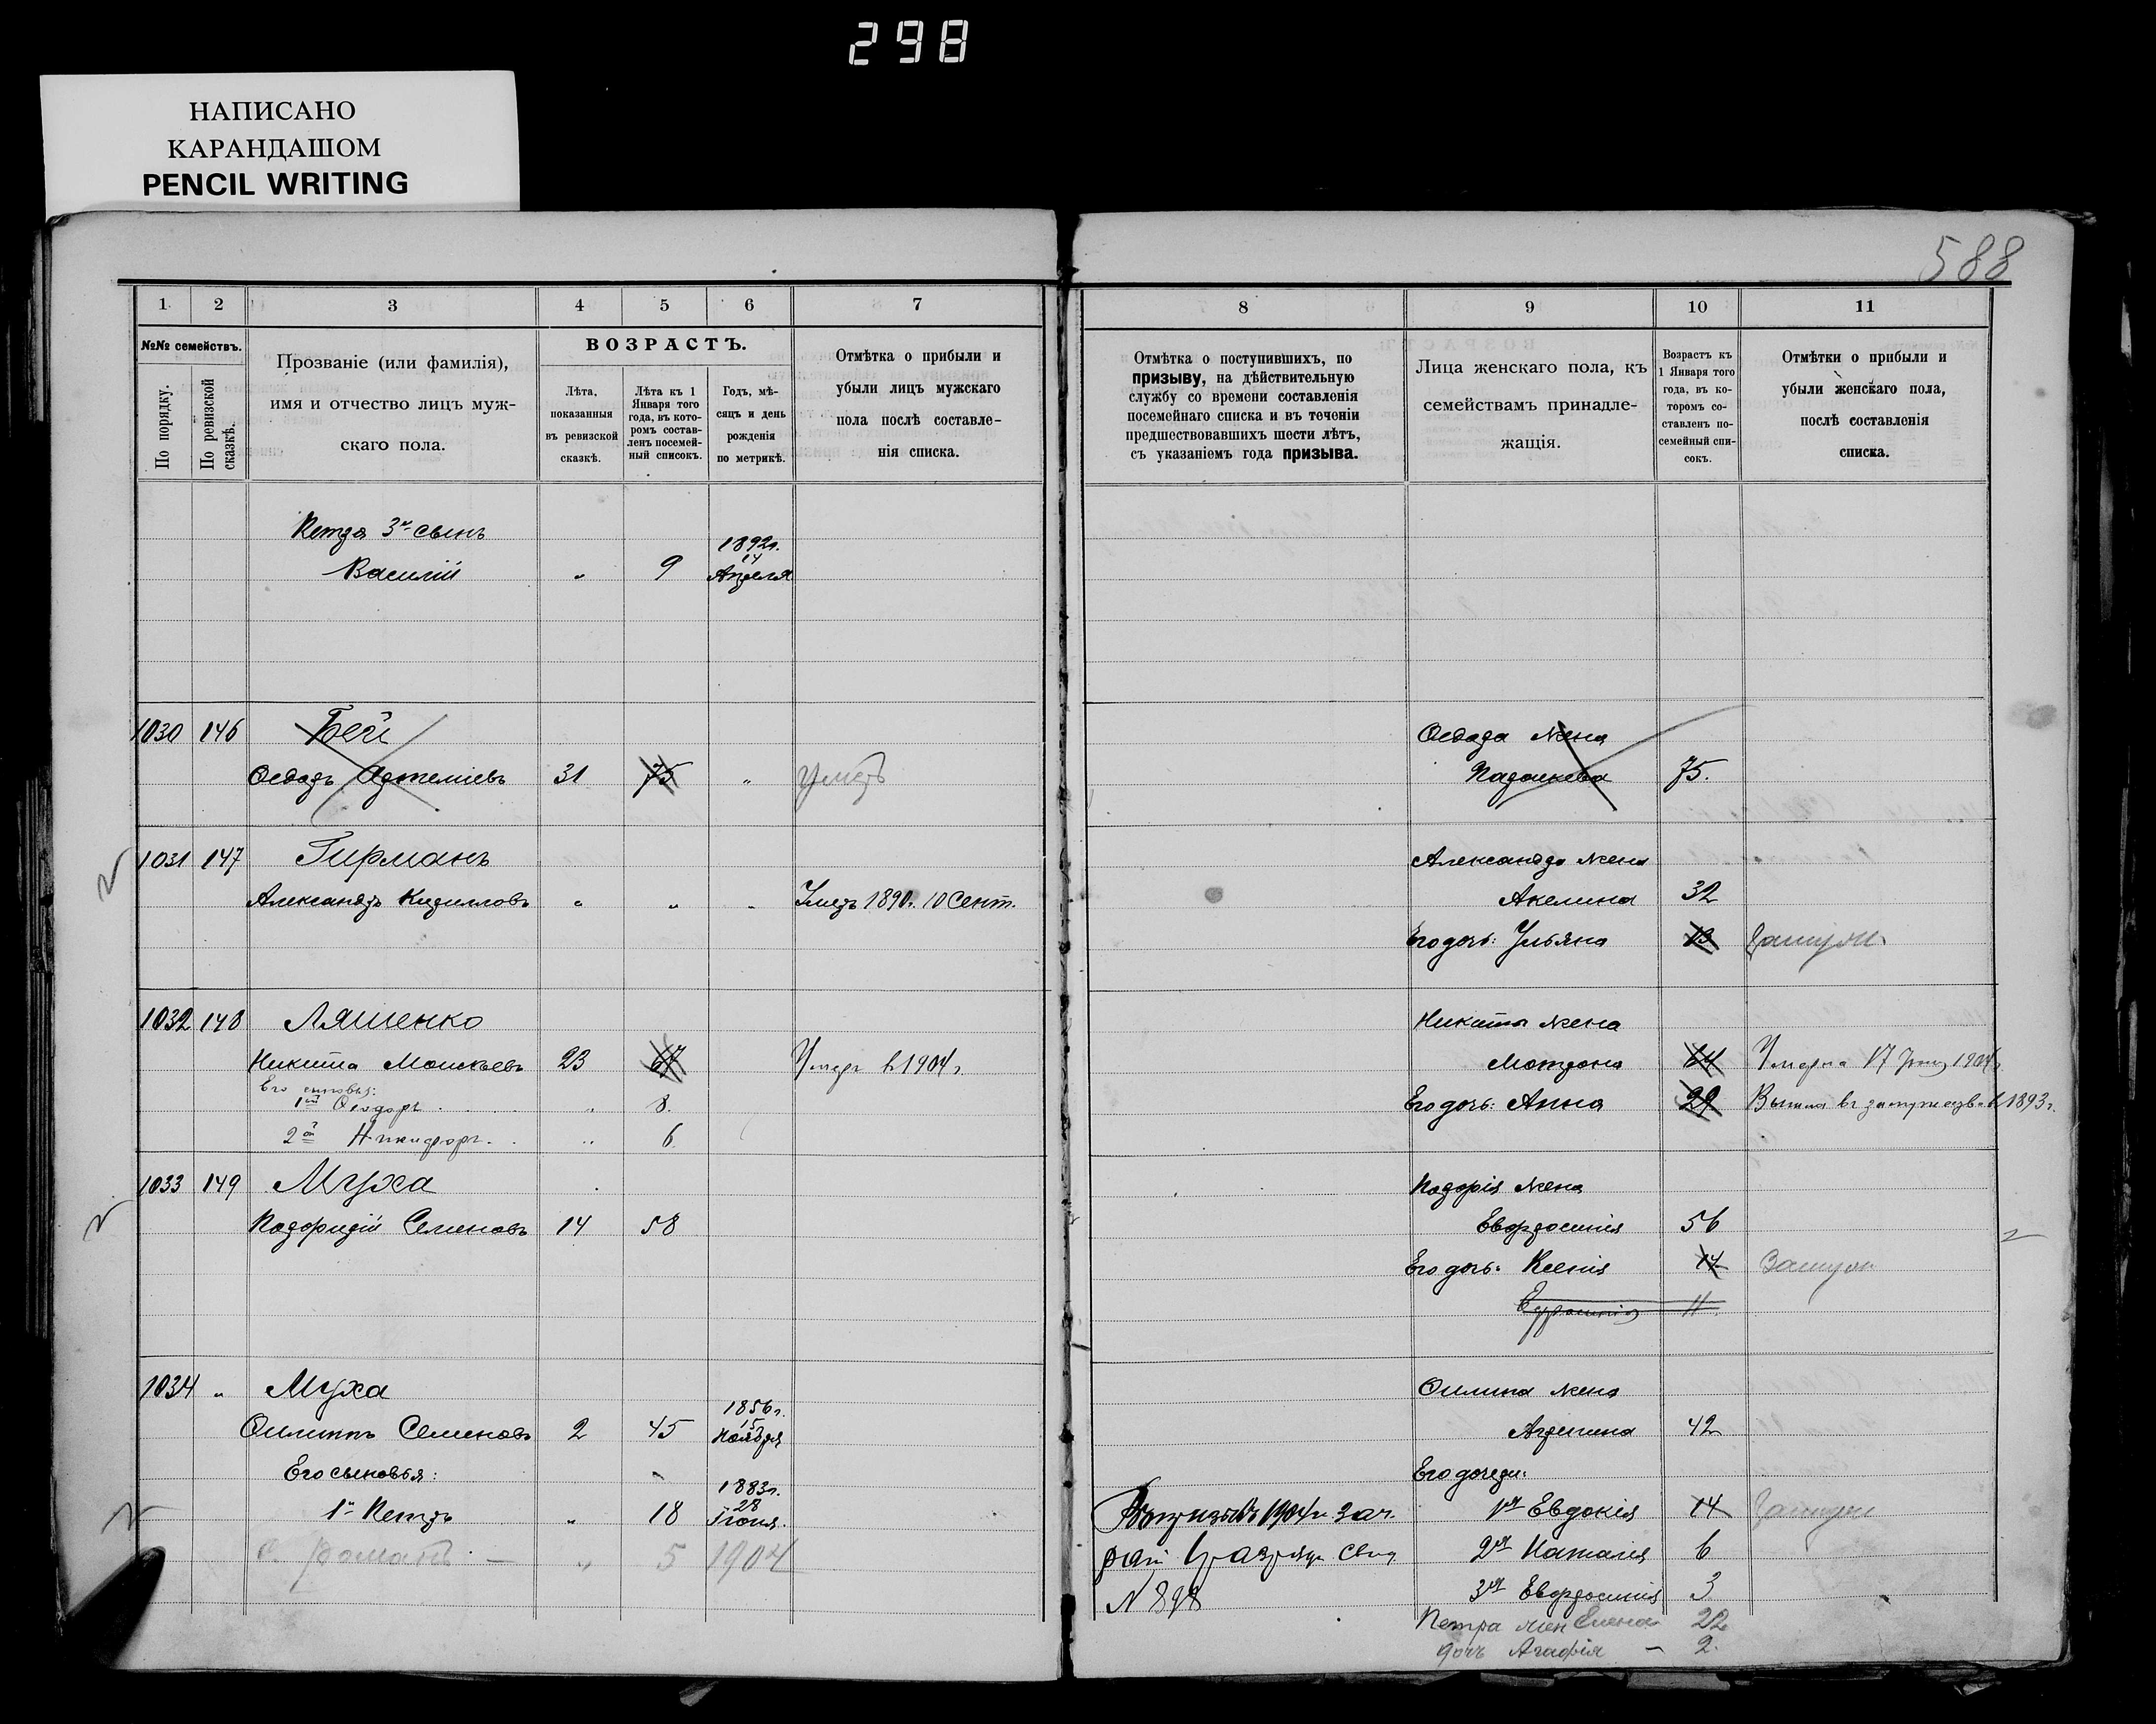 298
НАПИСАНО
КАРАНДАШОМ
PENCIL WRITING
588
1 2 3 4 5 6 7
№№ семействъ.
По порядку.
По ревизской сказкѣ.
Прозваніе (или фамилія),
имя и отчество лицъ муж-
скаго пола.
ВОЗРАСТЪ.
Лѣта,
показанныя
въ ревизской
сказкѣ.
Лѣта къ 1
Января того
года, въ кото-
ромъ состав-
ленъ посемей-
ный списокъ.
Годъ, мѣ-
сяцъ и день
рожденія
по метрикѣ.
Отмѣтка о прибыли и
убыли лицъ мужскаго
пола послѣ составле-
нія списка.
Петра 3й сынъ
1892г.
14
Василій " 9 Апреля
1030 146 Бей
31 75 " умеръ
1031 147 Гирманъ
Александръ Кирилловъ " " " Умеръ 1890г. 10 Сент.
1032 148 Ляшенко
Никита Моисѣевъ 23 67 Умеръ в 1904г.
Его сыновья:
1ый Ѳеодоръ " 8.
2ой Никифоръ " 6
1033 149 Муха
Семеновъ 14 58
1034 " Муха
1856г.
15
Филиппъ Семеновъ 2 45 Ноября
Его сыновья:
1883г.
28
1й Петръ " 18 Іюня.
Романъ — " 5 1904
8 9 10 11
Отмѣтка о поступившихъ, по
призыву, на дѣйствительную
службу со времени составленія
посемейнаго списка и въ теченіи
предшествовавшихъ шести лѣтъ,
съ указаніемъ года призыва.
Лица женскаго пола, къ
семействамъ принадле-
жащія.
Возрастъ къ
1 Января того
года, въ ко-
торомъ со-
ставленъ по-
семейный спи-
сокъ.
Отмѣтки о прибыли и
убыли женскаго пола,
послѣ составленія
списка.
жена
75.
Александра жена
Акелина 32
Его дочь: Ульяна 13 Замуж.
Никиты жена
Мотрона 64 Умерла 17 1904
Его дочь: Анна 29 Вышла въ замужедв. в 1893г.
жена
Евфросинія 56
Его дочь: Ксенія 14 Замуж
11
Филипа жена
Агрепина 42
Его дочери:
1я Евдокія 14 Замуж
2я Наталія 6
3я Евфросинія 3
1904г. зач.
№ 898
Петра жен Елена 22
дочь Агафія — 2.